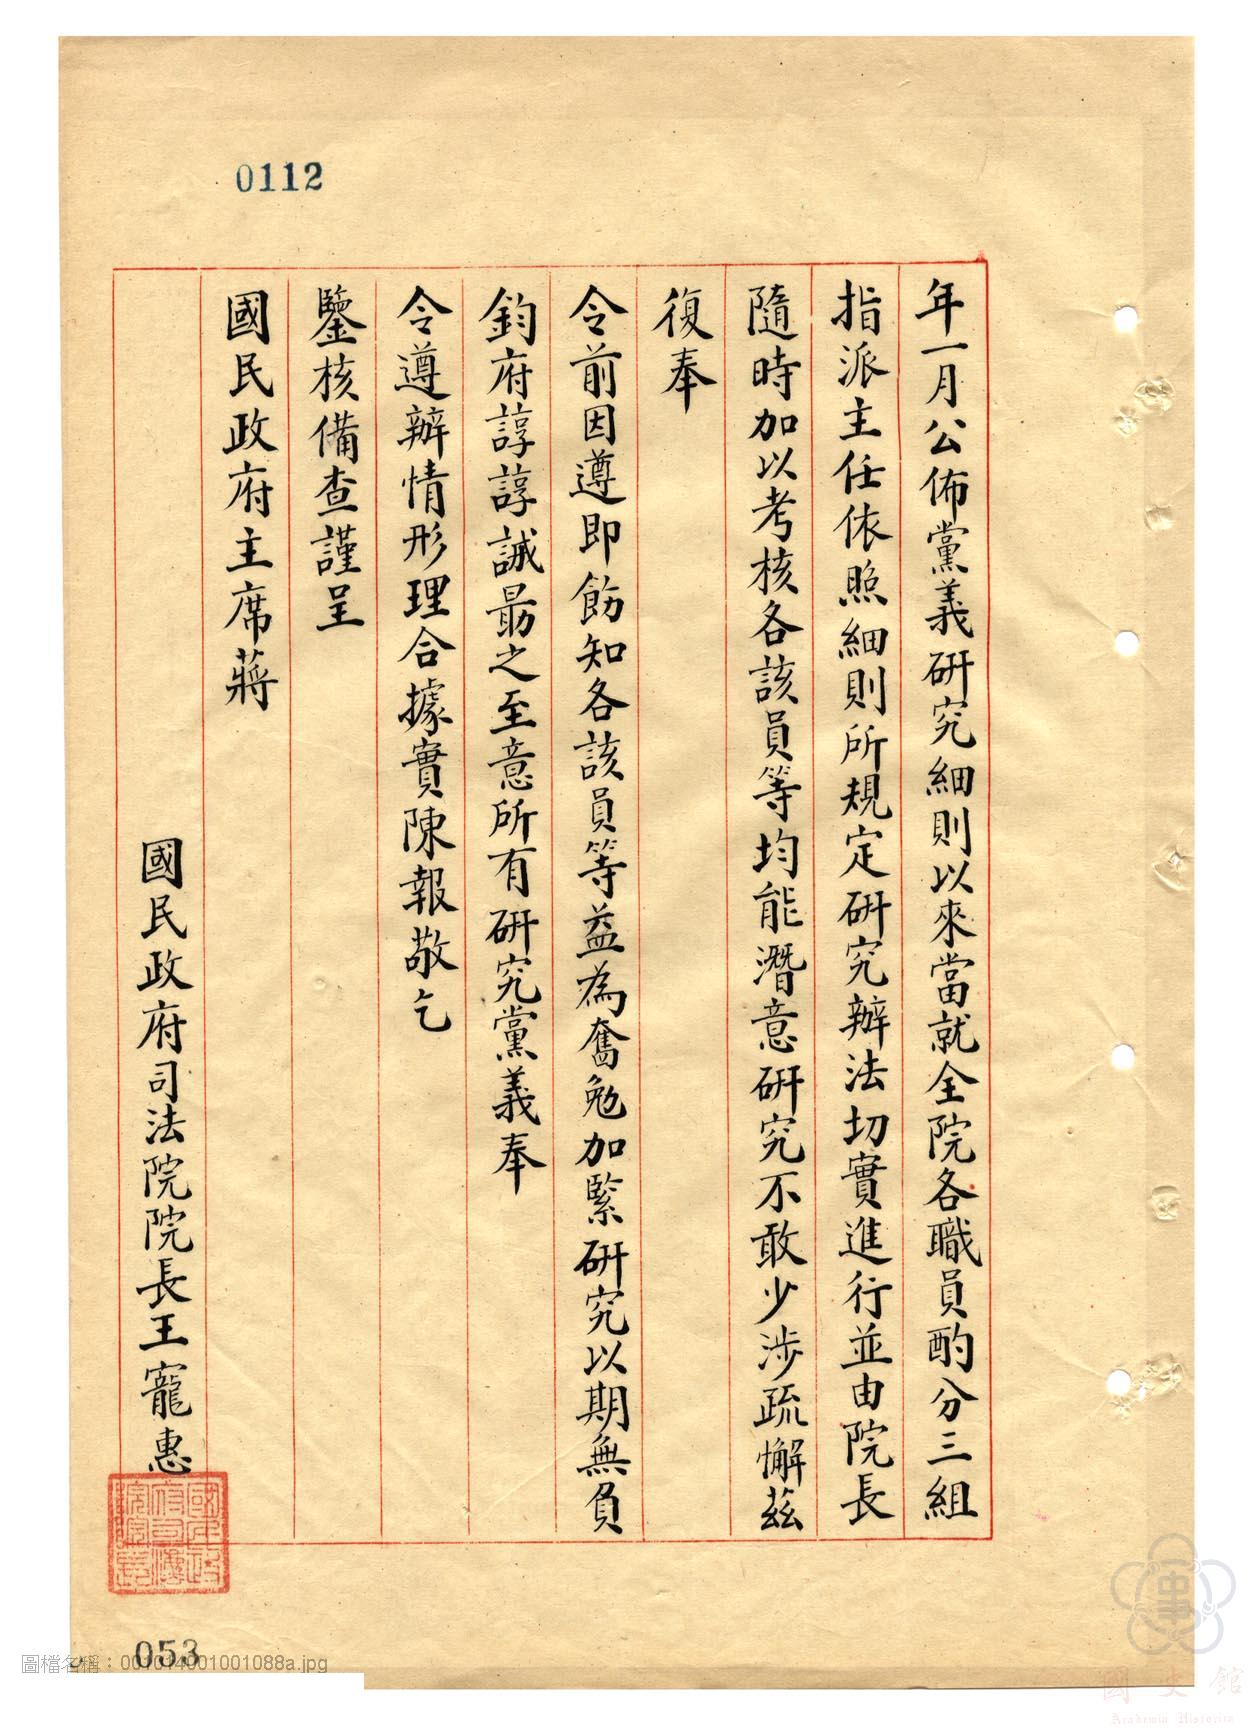 0112
年一月公佈黨義研究細則以來當就全院各職員酌分三組
指派主任依照細則所規定研究辦法切實進行並由院長
隨時加以考核各該員等均能潛意研究不敢少涉疏懈茲
復奉
令前因遵即飭知各該員等益為奮勉加緊研究以期無負
鈞府諄諄誡勗之至意所有研究黨義奉
令遵辦情形理合據實陳報敬乞
鑒核備查謹呈
國民政府主席蔣
國民政府司法院院長王寵惠
國民政府司法院院長
053
圖檔名稱：001014001001088a.jpg
國史館
Academia Historica